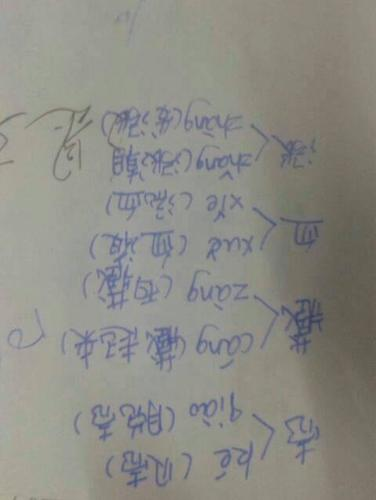 壳
ké (贝壳)
qiào (脱壳)
藏
cáng (藏起来)
zàng (西藏)
血
xuè (血液)
xiě (流血)
涨
zhǎng (涨潮)
zhàng